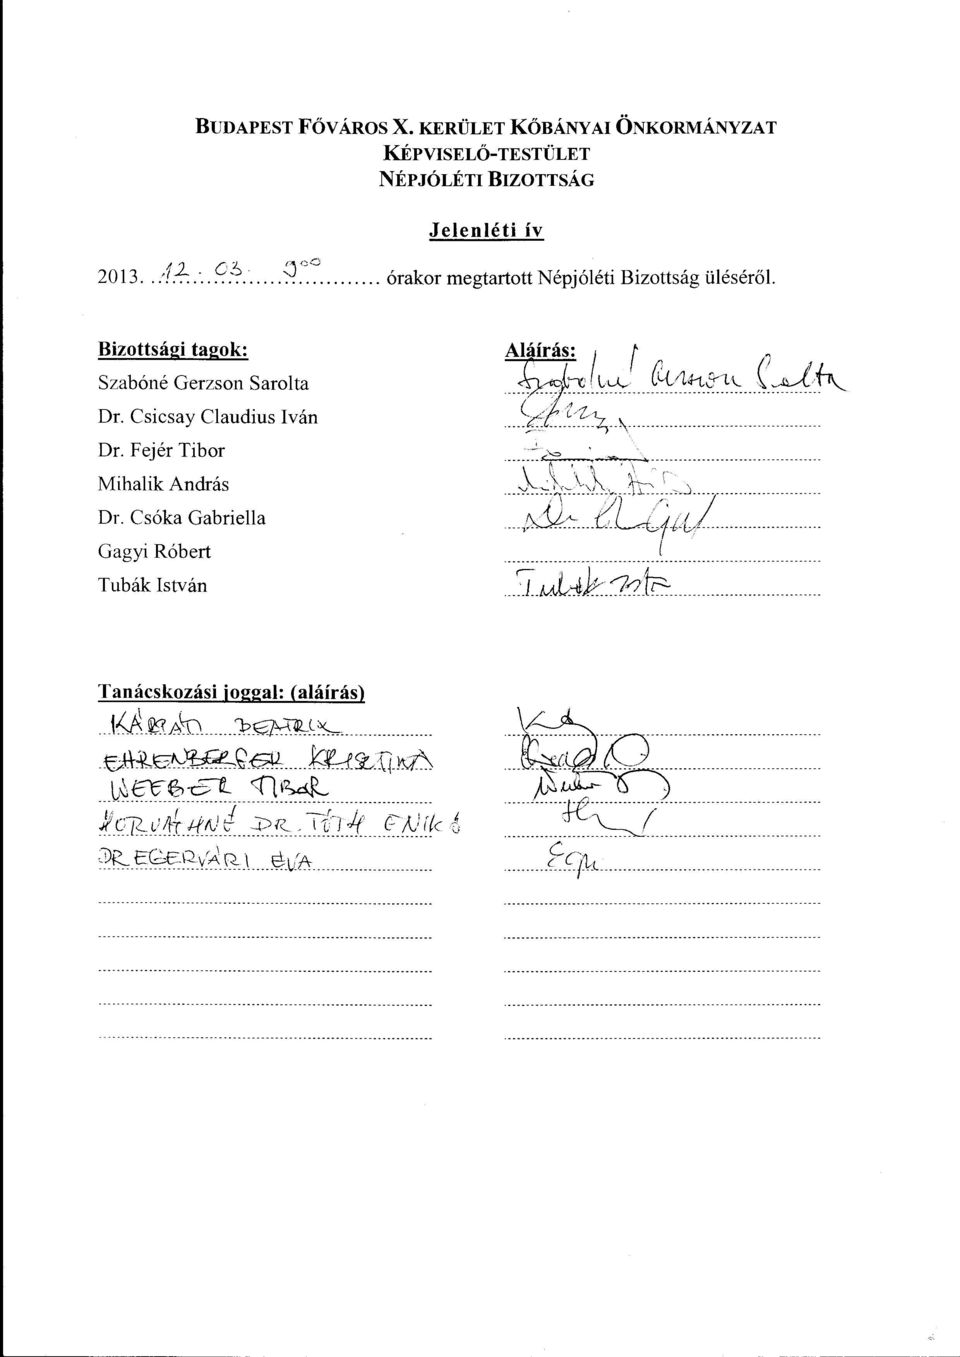 BUDAPEST FŐVÁROS X. KERÜLET KŐBÁNYAI ÖNKORMÁNYZAT
KÉPVISELŐ-TESTÜLET
NÉPJÓLÉTI BIZOTTSÁG
Jelenléti ív
2013. 12. 03. 9⁰⁰ órakor megtartott Népjóléti Bizottság üléséről.
Bizottsági tagok: Aláírás:
Szabóné Gerzson Sarolta Szabóné Gerzson Sarolta
Dr. Csicsay Claudius Iván
Dr. Fejér Tibor
Mihalik András
Dr. Csóka Gabriella
Gagyi Róbert
Tubák István Tubák
Tanácskozási joggal: (aláírás)
KÁRPÁTI BEATRIX
EHRENBERGER KRISZTINA
WEEBER TIBOR
HORVÁTHNÉ DR. TÓTH ENIKŐ
DR EGERVÁRI ÉVA